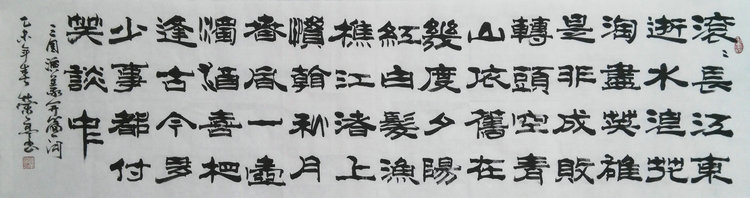 滾〻長江東
逝水浪花
淘盡英雄
是非成敗
轉頭空青
山依舊在
幾度夕陽
紅白髮漁
樵江渚上
慣看秋月
春風一壺
濁酒喜相
逢古今多
少事都付
笑談中
三国演義
乙未年春